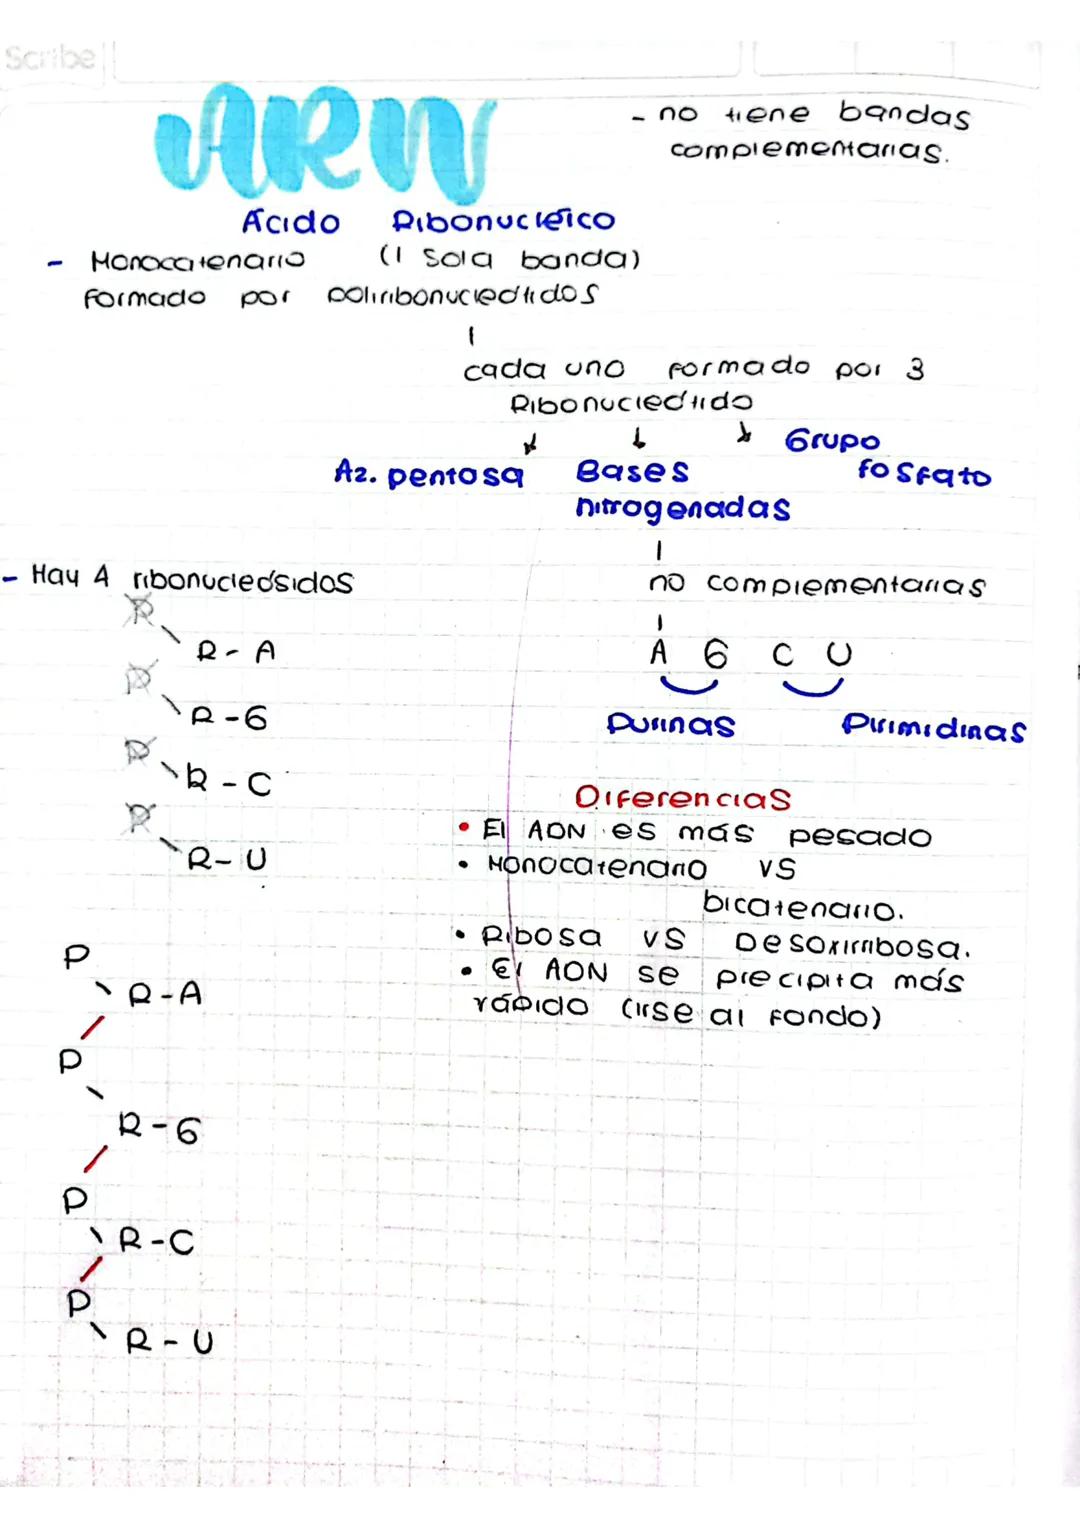 Scribe
ARN
- no tiene bandas
complementarias.
Ácido Ribonucléico
- Monocatenario (1 sola banda)
Formado por poliribonucleótidos
cada uno formado por 3
Ribonucleótido
Az. pentosa Bases Grupo
fosfato
nitrogenadas
- Hay 4 ribonucleósidos
no complementarias
P
R - A
A G C U
P
R - G
Purinas Pirimidinas
P
R - C
P
R - U
Diferencias
• El ADN es más pesado
• Monocatenario vs
bicatenario.
• Ribosa vs Desoxirribosa.
• El ADN se precipita más
rápido (irse al fondo)
P
R - A
P
R - G
P
R - C
P
R - U